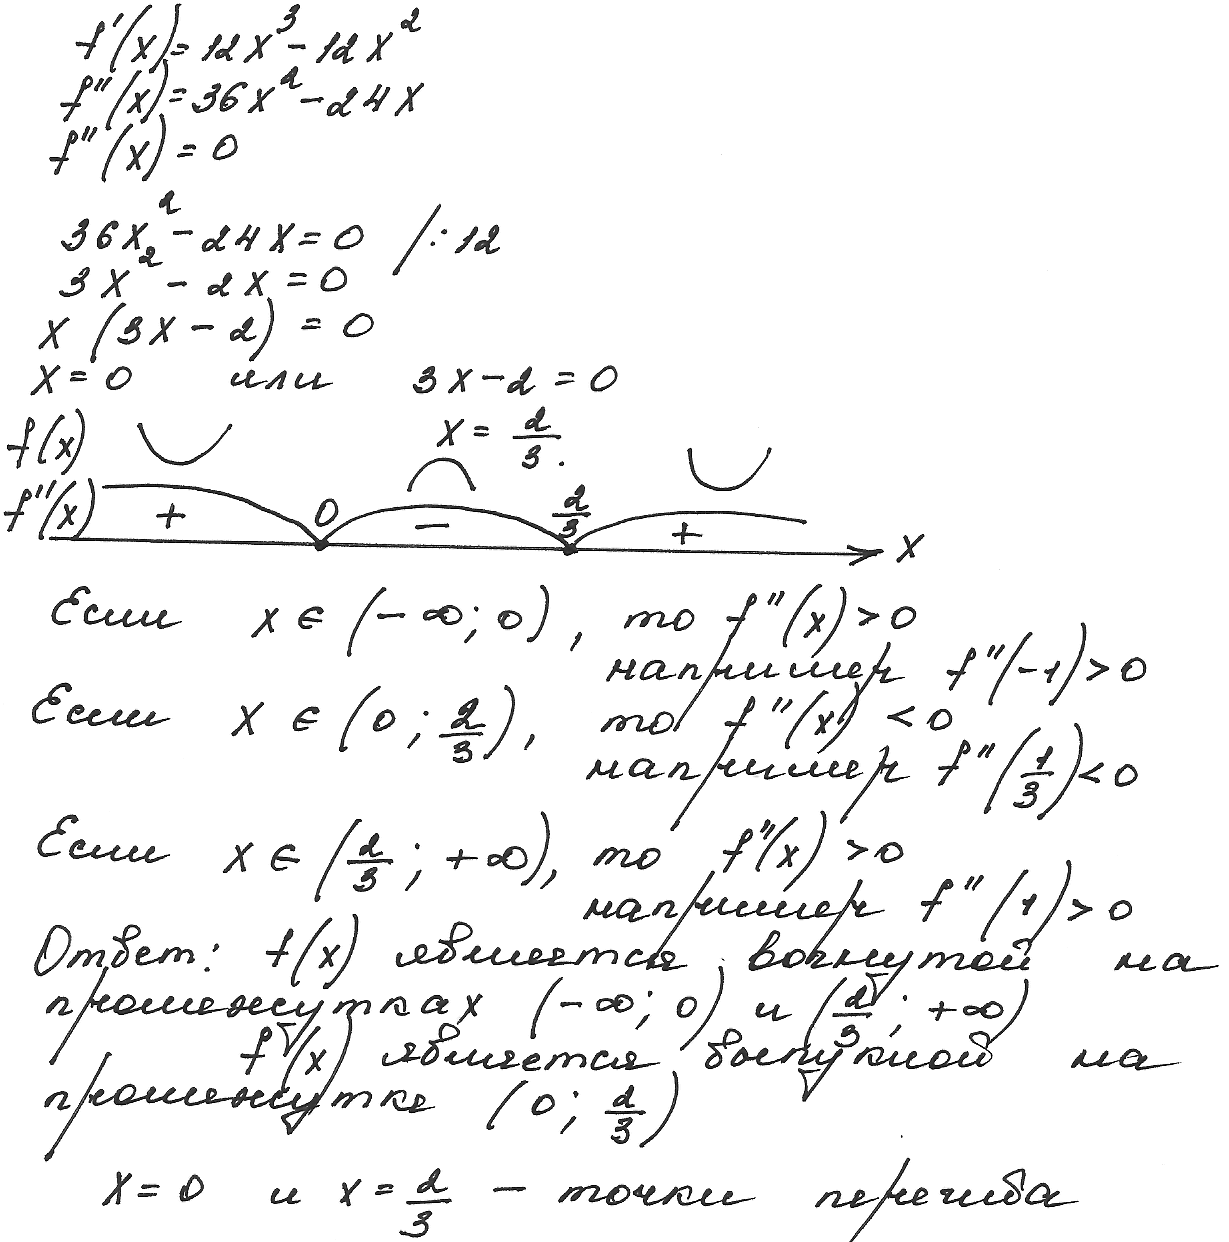 f'(x) = 12x³ - 12x²
f''(x) = 36x² - 24x
f''(x) = 0
36x² - 24x = 0 /:12
3x² - 2x = 0
x (3x - 2) = 0
x = 0 или 3x - 2 = 0
f(x) x = 2/3.
f''(x) + 0 - 2/3 + x
Если x ∈ (-∞; 0), то f''(x) > 0
например f''(-1) > 0
Если x ∈ (0; 2/3), то f''(x) < 0
например f''(1/3) < 0
Если x ∈ (2/3; +∞), то f''(x) > 0
например f''(1) > 0
Ответ: f(x) является вогнутой на
промежутках (-∞; 0) и (2/3; +∞)
f(x) является выпуклой на
промежутке (0; 2/3)
x = 0 и x = 2/3 - точки перегиба